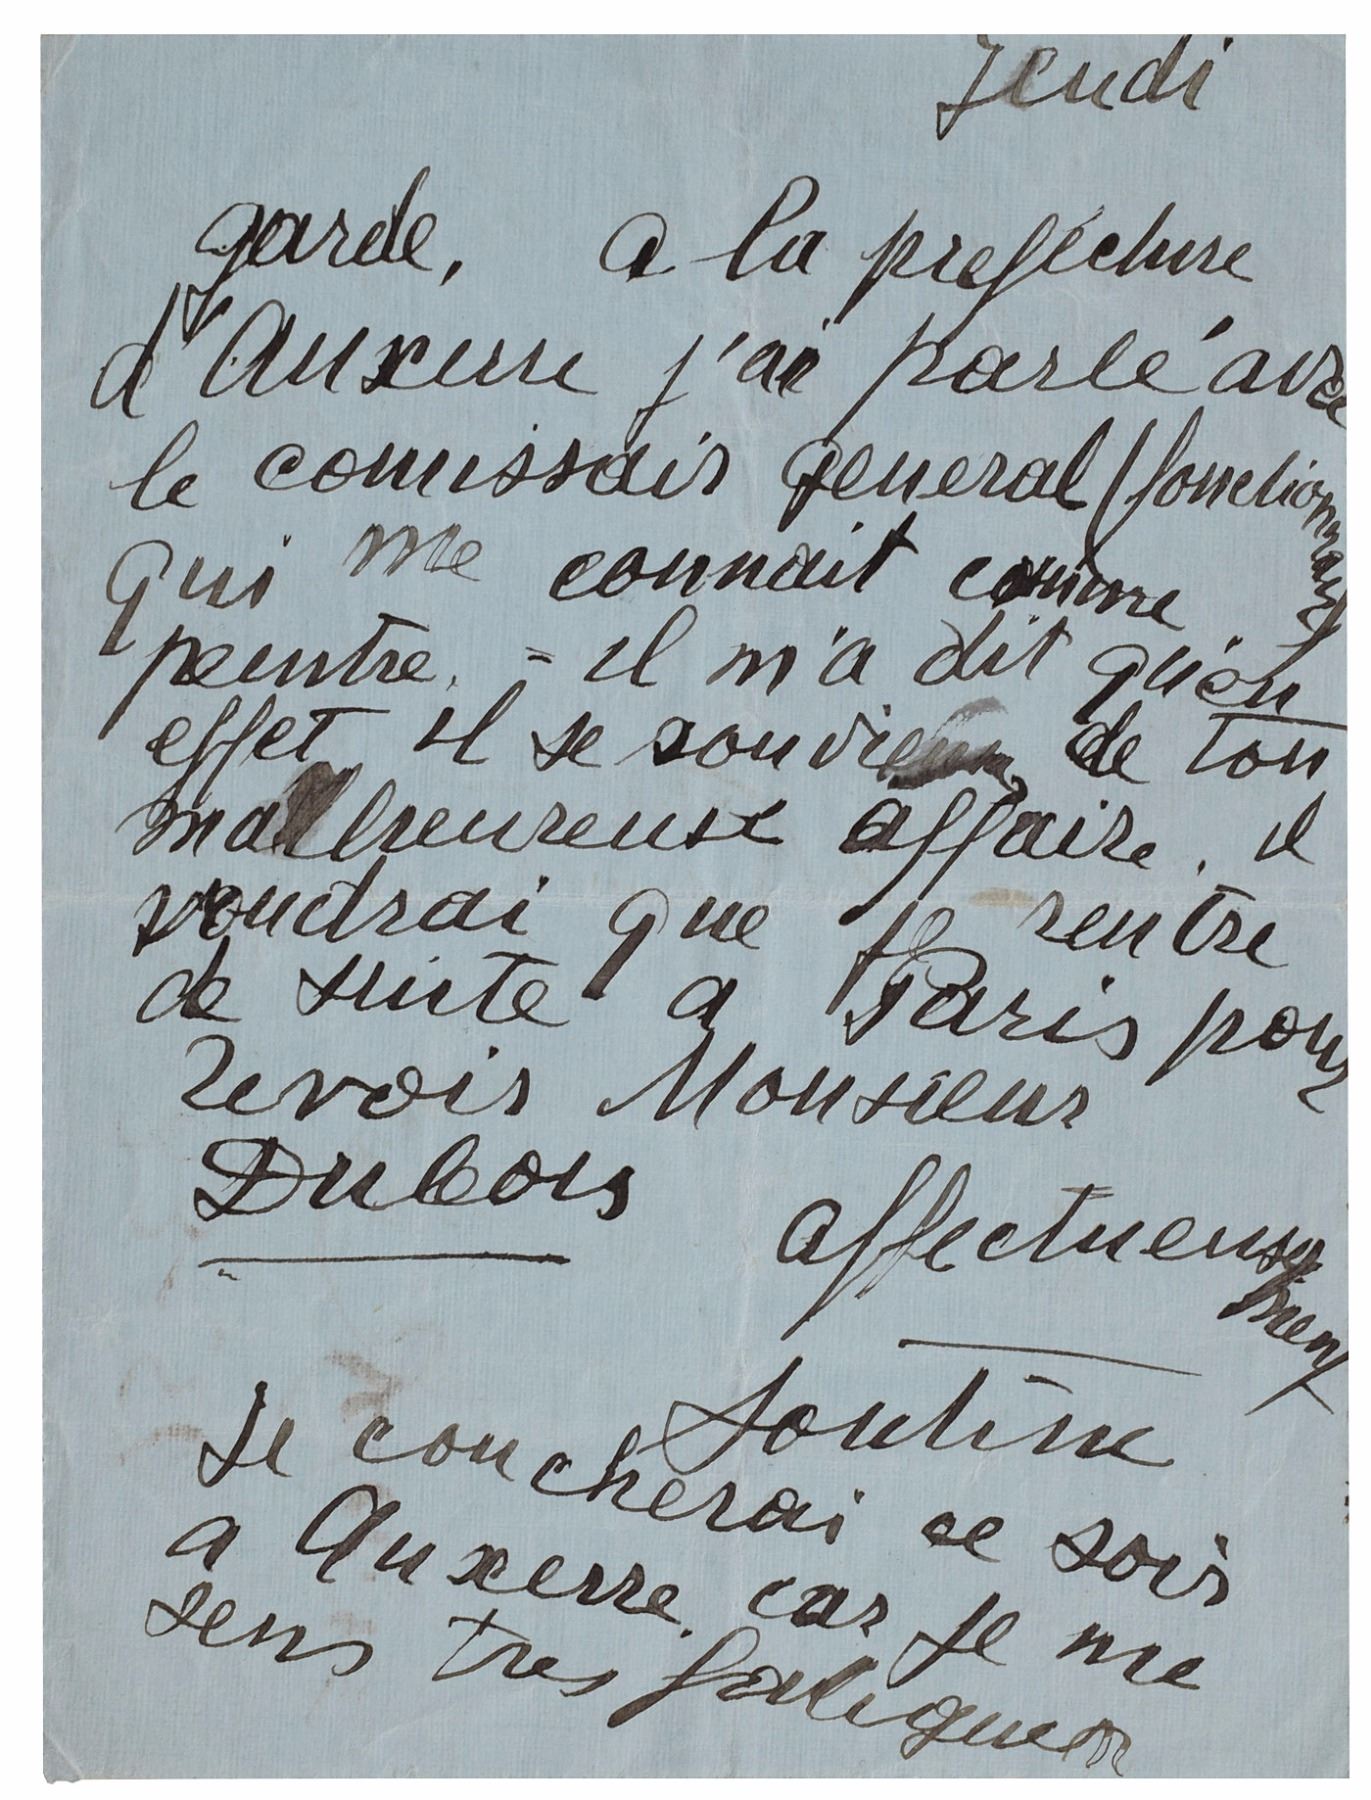 Jeudi
garde, a la prefecture
d'Auxerre j'ai parlé avec
le comissair general (fonctionnair)
qui me connait comme
peintre. = il m'a dit qu'en
effet il se souvien de ton
malheureuse affaire. il
voudrai que je rentre
de suite a Paris pour
revoir Monsieur
Dubois
affectueusement
Soutine
Je coucherai ce soir
a Auxerre car je me
sens tres fatiguer